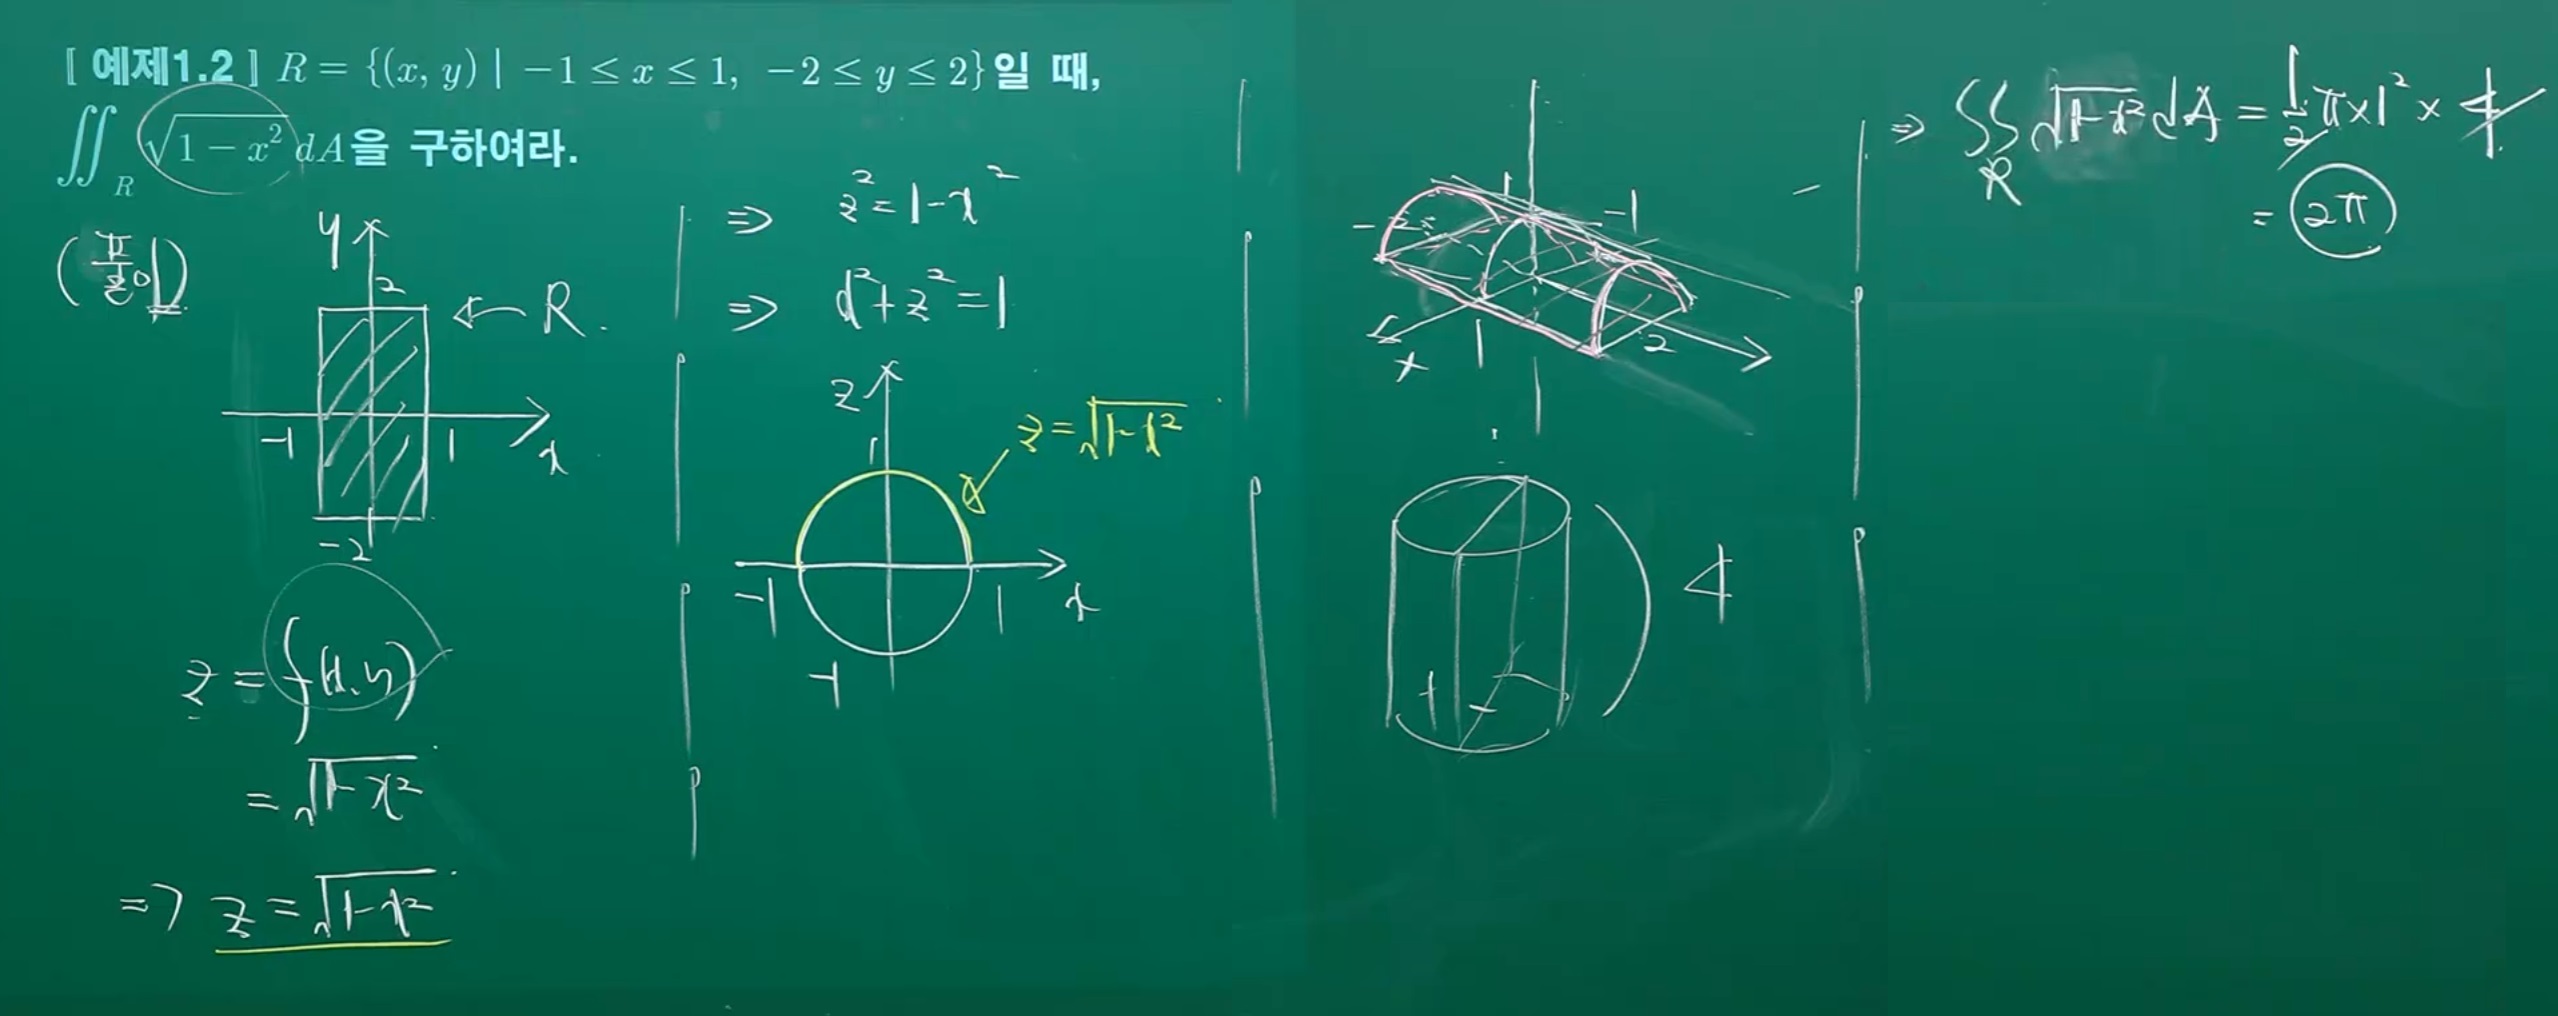 [ 예제1.2 ] R = {(x, y) | −1 ≤ x ≤ 1, −2 ≤ y ≤ 2}일 때,
∬_R √(1 − x²) dA을 구하여라.
(풀이)
y
2
← R.
−1
1
x
−2
z = f(x,y)
= √(1−x²)
⇒ z = √(1−x²)
⇒ z² = 1−x²
⇒ x² + z² = 1
z
1
z = √(1−x²)
−1
1
x
−1
1
−1
−2
x
1
2
4
⇒ ∬_R √(1−x²) dA = 1/2 π×1² × 4
= 2π